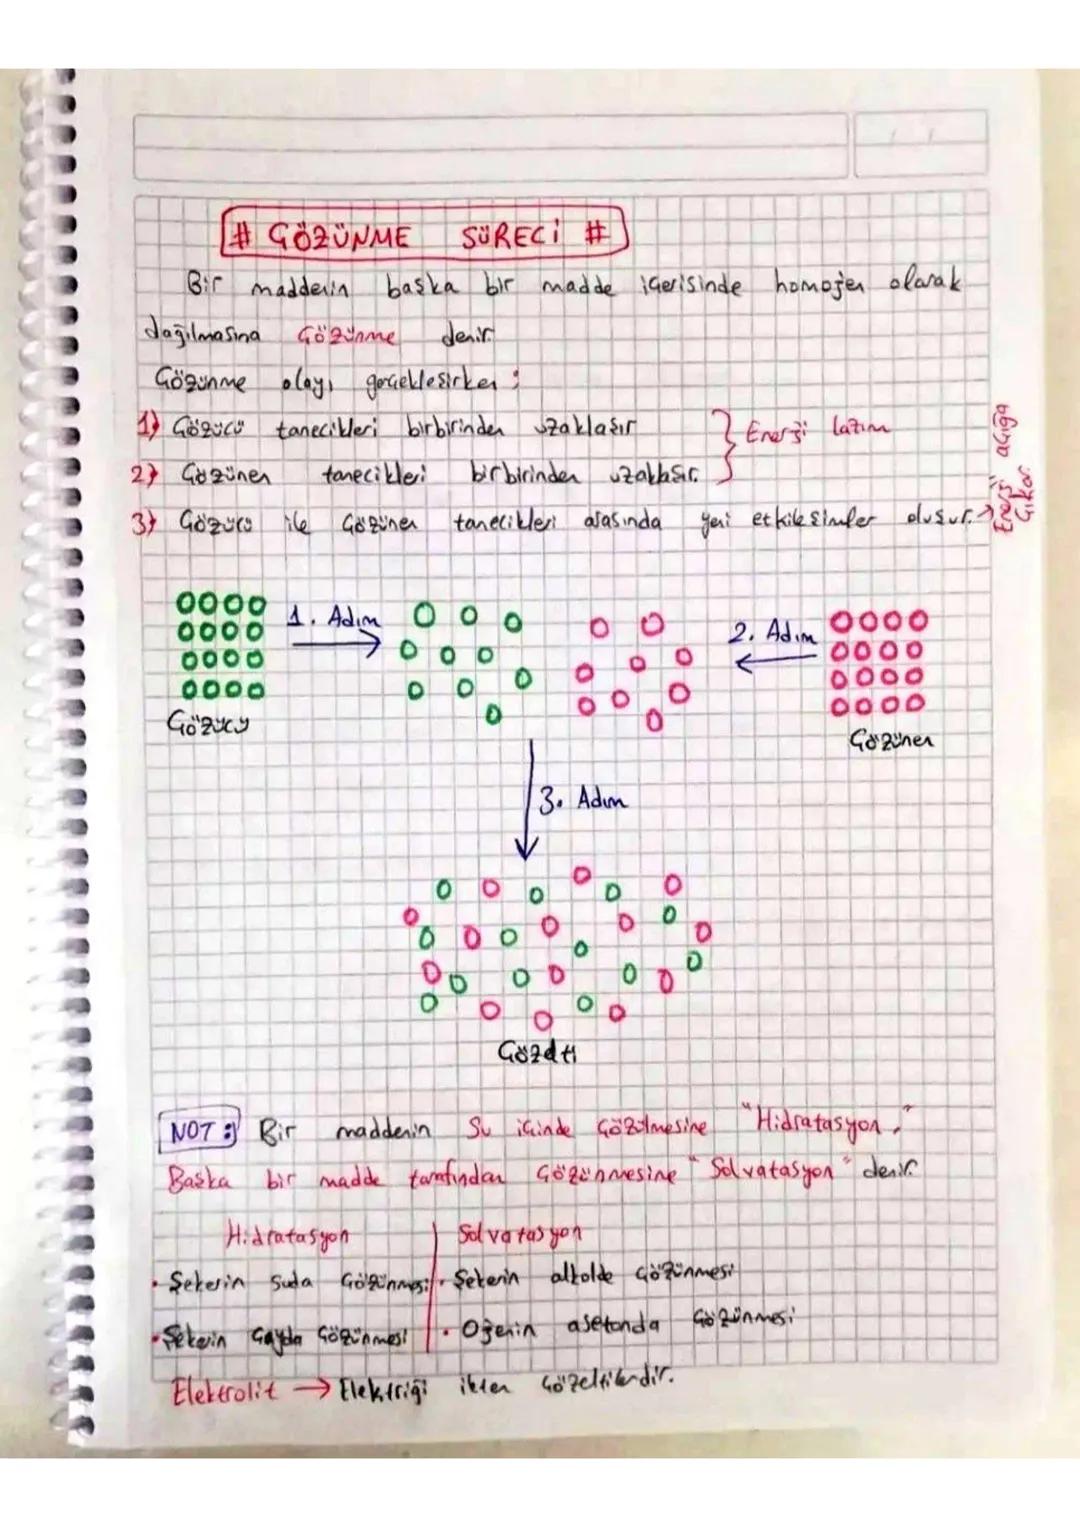 # ÇÖZÜNME SÜRECİ #
Bir maddenin başka bir madde içerisinde homojen olarak
dağılmasına çözünme denir.
Çözünme olayı gerçekleşirken ;
1) Çözücü tanecikleri birbirinden uzaklaşır
2) Çözünen tanecikleri birbirinden uzaklaşır.
Enerji lazım
3) Çözücü ile çözünen tanecikleri arasında yeni etkileşimler oluşur.
Enerji açığa
çıkar.
1. Adım
2. Adım
Çözücü
Çözünen
3. Adım
Çözelti
NOT: Bir maddenin su içinde çözülmesine "Hidratasyon,"
Başka bir madde tarafından çözünmesine "Solvatasyon" denir.
Hidratasyon
Solvatasyon
• Şekerin suda çözünmesi
• Şekerin alkolde çözünmesi
• Şekerin çayda çözünmesi
• Ojenin asetonda çözünmesi
Elektrolit → Elektriği ileten çözeltilerdir.